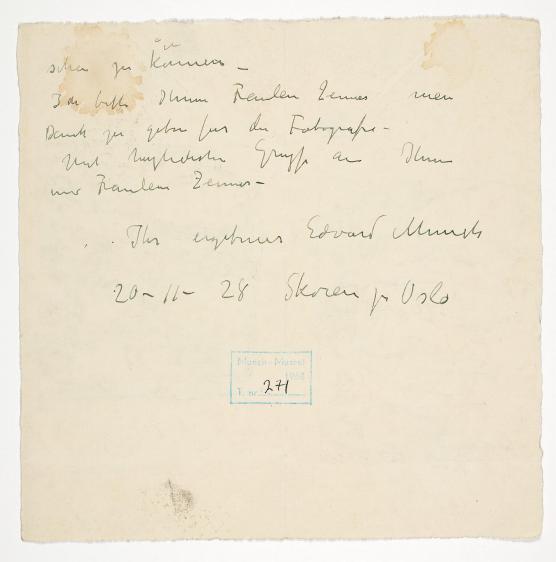 sehen zu können –
Ich bitte Ihnen Fraulen Zennes mein
Dank zu geben fur die Fotografie –
Mit herzlichsten Grusse an Ihnen
und Fraulein Zennes –
Ihr ergebener Edvard Munch
20 – 11 – 28 Skøien pr Oslo
Munch-Museet
271